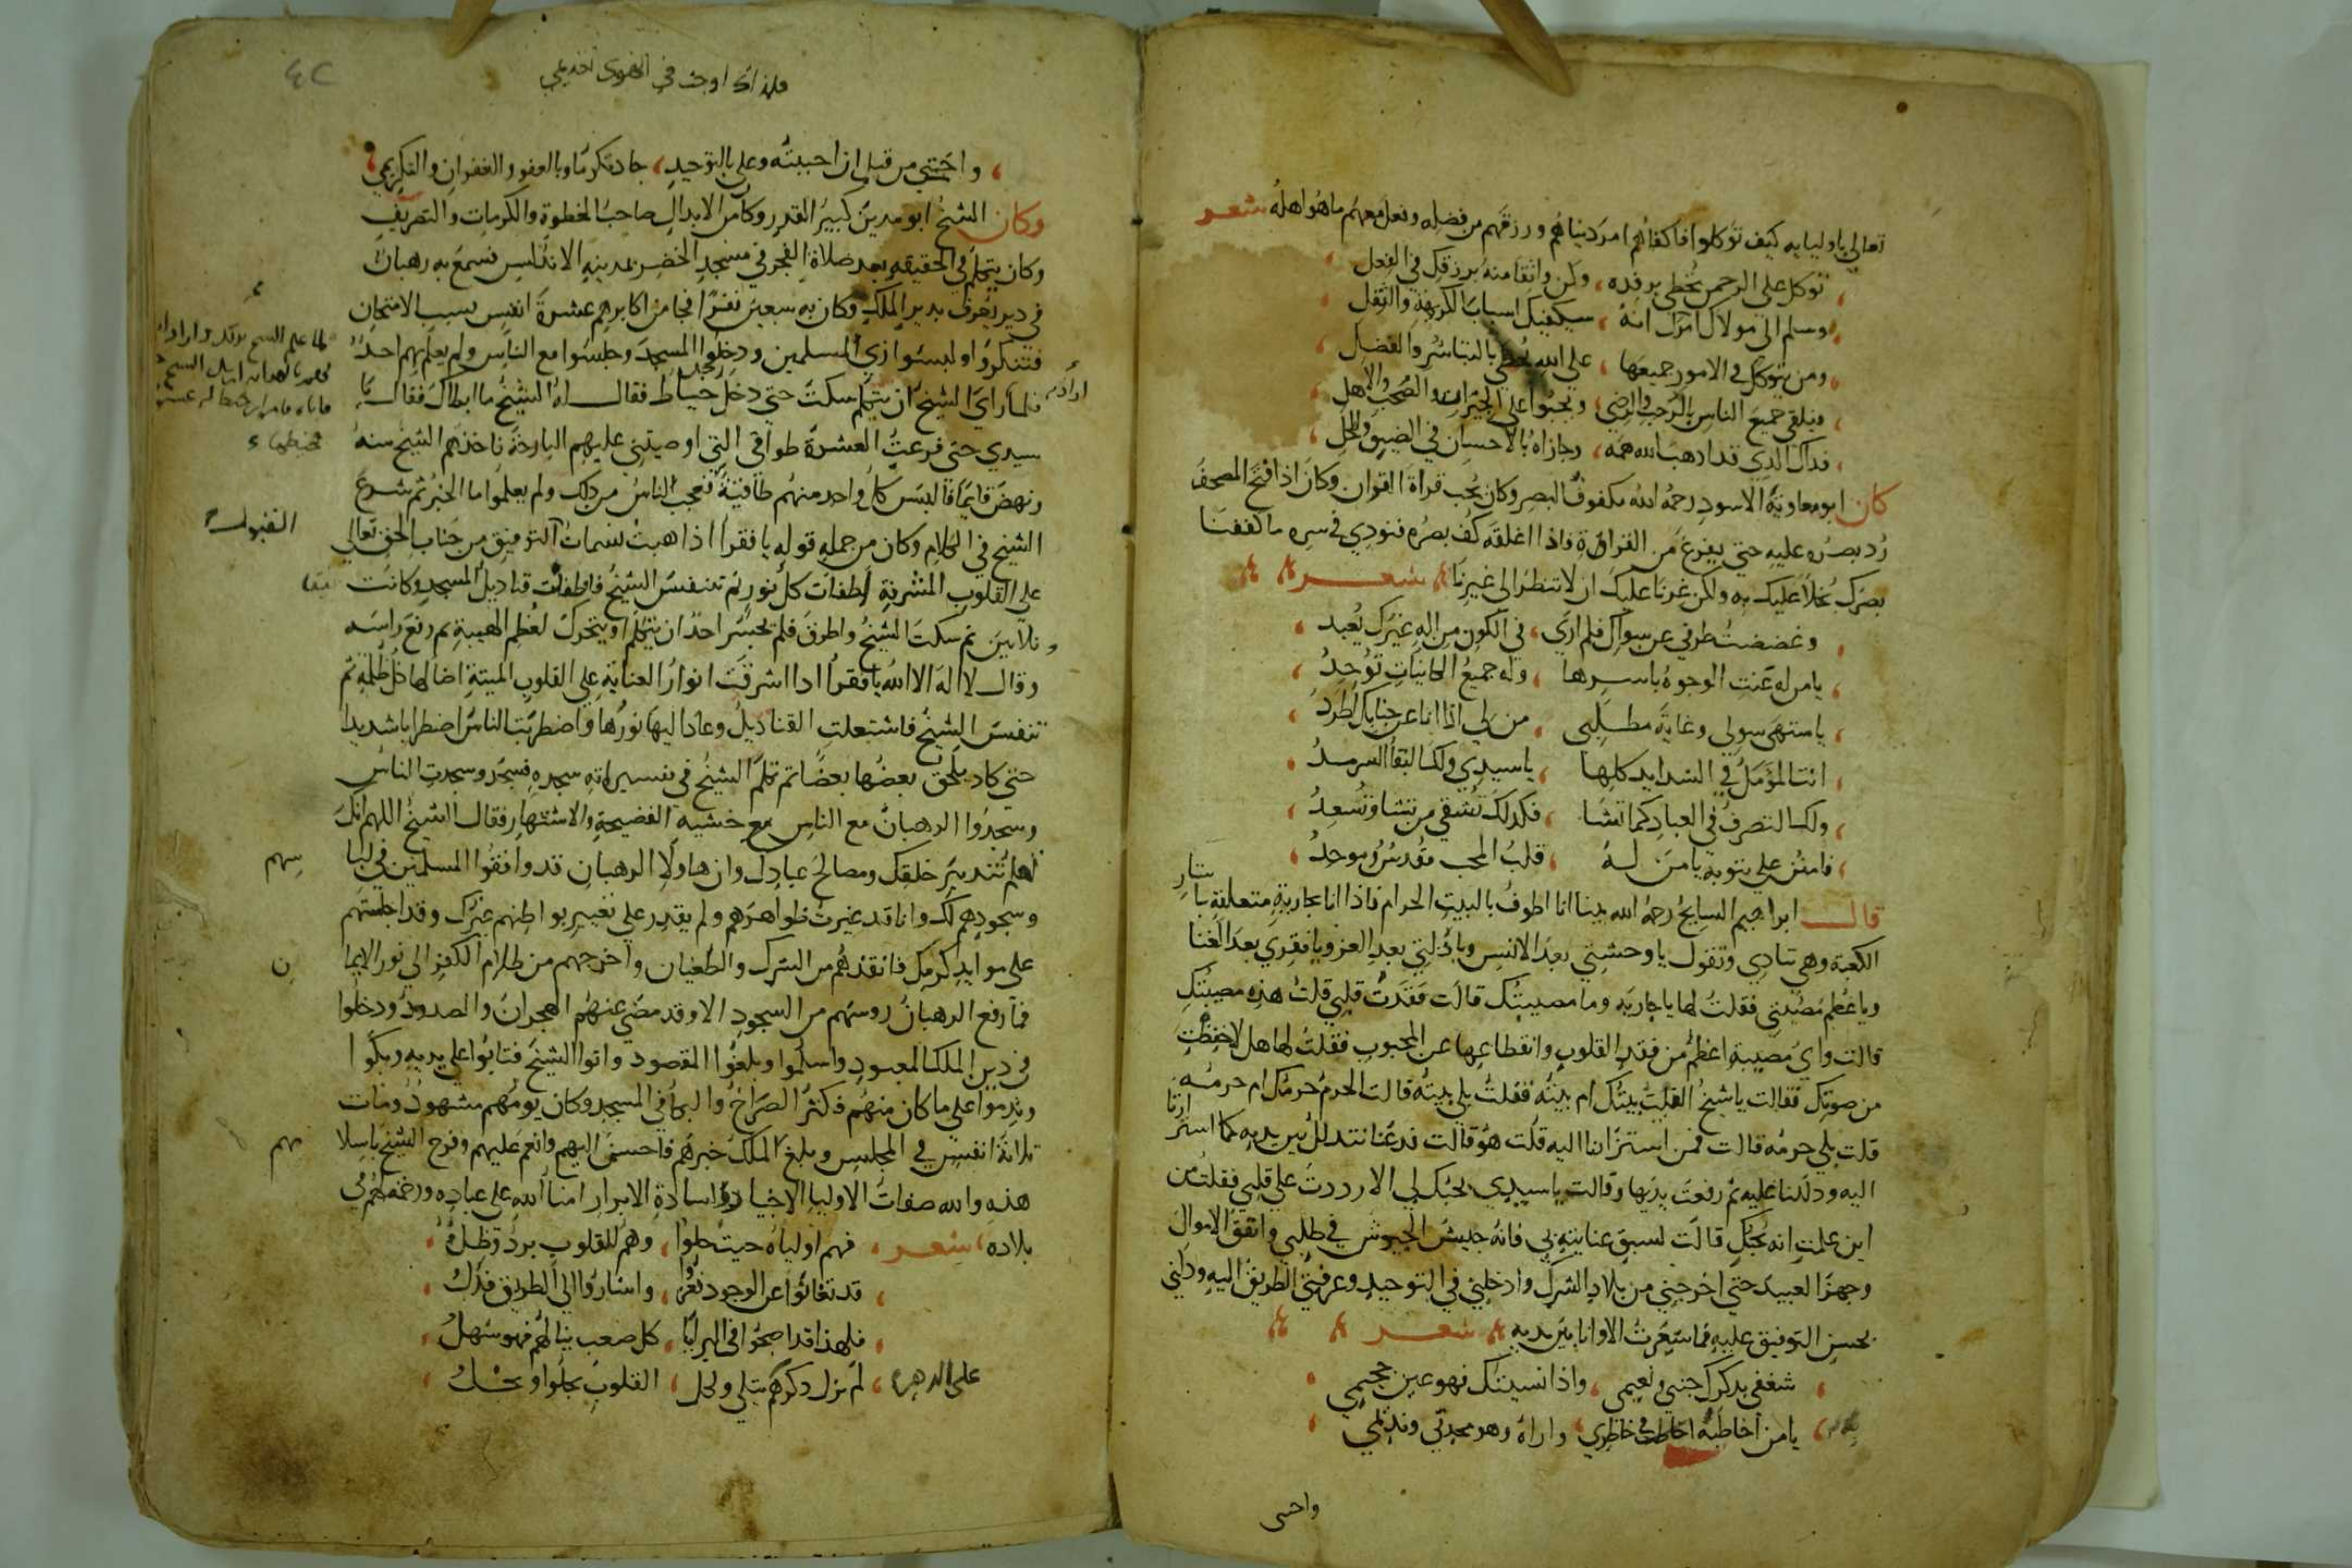 تعالي باوليايه كيف توكلوا فاكفاهم امر دنياهم ورزقهم من فضله وفعل معهم ماهو اهله شعر
توكل على الرحمن تحظى برفده ، وكن واثقا منه برزقك في الفعل
وسلم الى مولاك امرك انه ، سيكفيك اسباب الكريهة والثقل
ومن يتوكل في الامور جميعها ، على الله يحظى بالتباشر والفضل
فيلقى جميع الناس بالرحب والرضي ، ويحنوا على الجيران والصحب والاهل
فذاك الذي قد اذهب الله همه ، وجازاه بالاحسان في الضيق والحل
كان ابو معاوية الاسود رحمه الله مكفوف البصر وكان يحب قراة القران وكان اذا فتح المصحف
رد بصره عليه حتي يفرغ من القراة فاذا اغلقه كف بصره فنودي في سره ما كففنا
بصرك بخلا عليك به ولكن غرنا عليك ان لا تنظر الى غيرنا شعر
وغضضت طرفي عن سواك فلم ارى ، في الكون من اله غيرك يعبد
يامن له عنت الوجوه باسرها ، وله جميع الكائنات توحد
يا منتهى سولي وغاية مطلبى ، من لي اذا انا عن جنابك اطرد
انت المؤمل في الشدايد كلها ، يا سيدي ولك البقا السرمد
ولك التصرف في العباد كما تشا ، فكذلك تشقي من تشا وتسعد
فامنن علي بتوبة يا من له ، قلب المحب مقدس وموحد
قال ابراهيم السايح رحمه الله بينا انا اطوف بالبيت الحرام فاذا انا بجارية متعلقة باستار
الكعبة وهي تنادي وتقول يا وحشتي بعد الانس ويا ذلتي بعد العز ويا فقري بعد الغنا
ويا عظم مصيبتي فقلت لها يا جاريه وما مصيبتك قالت فقدت قلبي قلت هذه مصيبتك
قالت واي مصيبة اعظم من فقد القلوب وانقطاعها عن المحبوب فقلت لها هلا خفضت
من صوتك فقالت يا شيخ القيت بيتك ام بيته فقلت بلي بيته قالت الحرم حرمك ام حرمه
قلت بلي حرمه قالت فمن استزارنا اليه قلت هو قالت فدعنا نتدلل بين يديه كما استزارنا
اليه ودلنا عليه ثم رفعت يديها وقالت يا سيدي بحبك لي الا رددت علي قلبي فقلت من
اين علمت انه يحبك قالت لسبق عنايته بي فانه جيش الجيوش في طلبي وانفق الاموال
وجهز العبيد حتي اخرجني من بلاد الشرك وادخلني في التوحيد وعرفني الطريق اليه ودلني
بحسن التوفيق عليه فما شعرت الا وانا بين يديه شعر
شغفي بذكرك جنتي ونعيمى ، واذا نسيتك فهو عين جحيمي
يامن اخاطبه في خاطري ، واراه وهو محدثي ونديمي
واحتى
فلهذا اوجب في الهوى
٤٢
واحتنى من قبل ان احببته وعلي بالتوحيد ، جاد تكرما وبالعفو والغفران والتكريم
وكان الشيخ ابو مدين كبير القدر وكان من الابدال صاحب الخطوة والكرامات والتصريف
وكان يتكلم في الحقيقه بعد صلاة الفجر في مسجد الخضر بمدينه الاندلس فسمع به رهبان
في دير يعرف بدير الملك وكان به سبعين نفرا فجا من اكابرهم عشرة انفس بسبب الامتحان
فتنكروا ولبسوا زي المسلمين ودخلوا المسجد وجلسوا مع الناس ولم يعلم بهم احد
فلما راي الشيخ ان يتكلم سكت حتي دخل رجل خياط فقال له الشيخ ما ابطاك فقال يا
سيدي حتي فرغت العشرة طواقي التي اوصيتني عليهم البارحة فاخذهم الشيخ منه
ونهض قايما فالبس كل واحد منهم طاقية فعجب الناس من ذلك ولم يعلموا ما الخبر ثم شرع
الشيخ في الكلام وكان من جمله قوله يا فقرا اذا هبت نسمات التوفيق من جناب الحق تعالي
القبول
على القلوب المشرقة اطفات كل نور ثم تنفس الشيخ فاطفئت قناديل المسجد وكانت
وثلاثين ثم سكت الشيخ واطرق فلم يجسر احد ان يتكلم او يتحرك لعظم الهيبة ثم رفع راسه
وقال لا اله الا الله يا فقرا اذا اشرقت انوار العناية على القلوب الميتة اضا لها كل ظلمة ثم
تنفس الشيخ فاشتعلت القناديل وعاد اليها نورها واضطربت الناس اضطرابا شديدا
حتي كاد يلحق بعضها بعضا ثم تكلم الشيخ في تفسير اية سجده فسجد وسجدت الناس
وسجدوا الرهبان مع الناس مع خشية الفضيحة والاشتهار فقال الشيخ اللهم انك
اعلم بتدبير خلقك ومصالح عبادك وان هاولا الرهبان قد وافقوا المسلمين في لباسهم
وسجودهم لك وانا قد غيرت ظواهرهم ولم يقدر على تغيير بواطنهم غيرك وقد اجلستهم
على موايد كرمك فانقذهم من الشرك والطغيان واخرجهم من ظلام الكفر الي نور الايمان
فما رفع الرهبان روسهم من السجود الا وقد مضى عنهم الهجران والصدود ودخلوا
في دين الملك المعبود واسلموا وبلغوا المقصود واتوا الشيخ فتابوا على يديه وبكوا
وندموا على ما كان منهم فكثر الصراخ والبكا في المسجد وكان يومهم مشهود ومات
ثلاثة انفس في المجلس وبلغ الملك خبرهم فاحسن اليهم وانعم عليهم وفرح الشيخ باسلامهم
هذه والله صفات الاوليا الاخيار والسادة الابرار امنا الله على عباده
بلاده شعر فهم اولياه حيث حلوا ، وهم للقلوب برد وظل
قد تفانوا عن الوجود ، واشاروا الي الطريق فدلوا
فلهذا قد اصبحوا في البرايا ، كل صعب ينالهم فهو سهل
لم يزل ذكرهم يتلي ولكل ، القلوب يجلوا
على الدهر